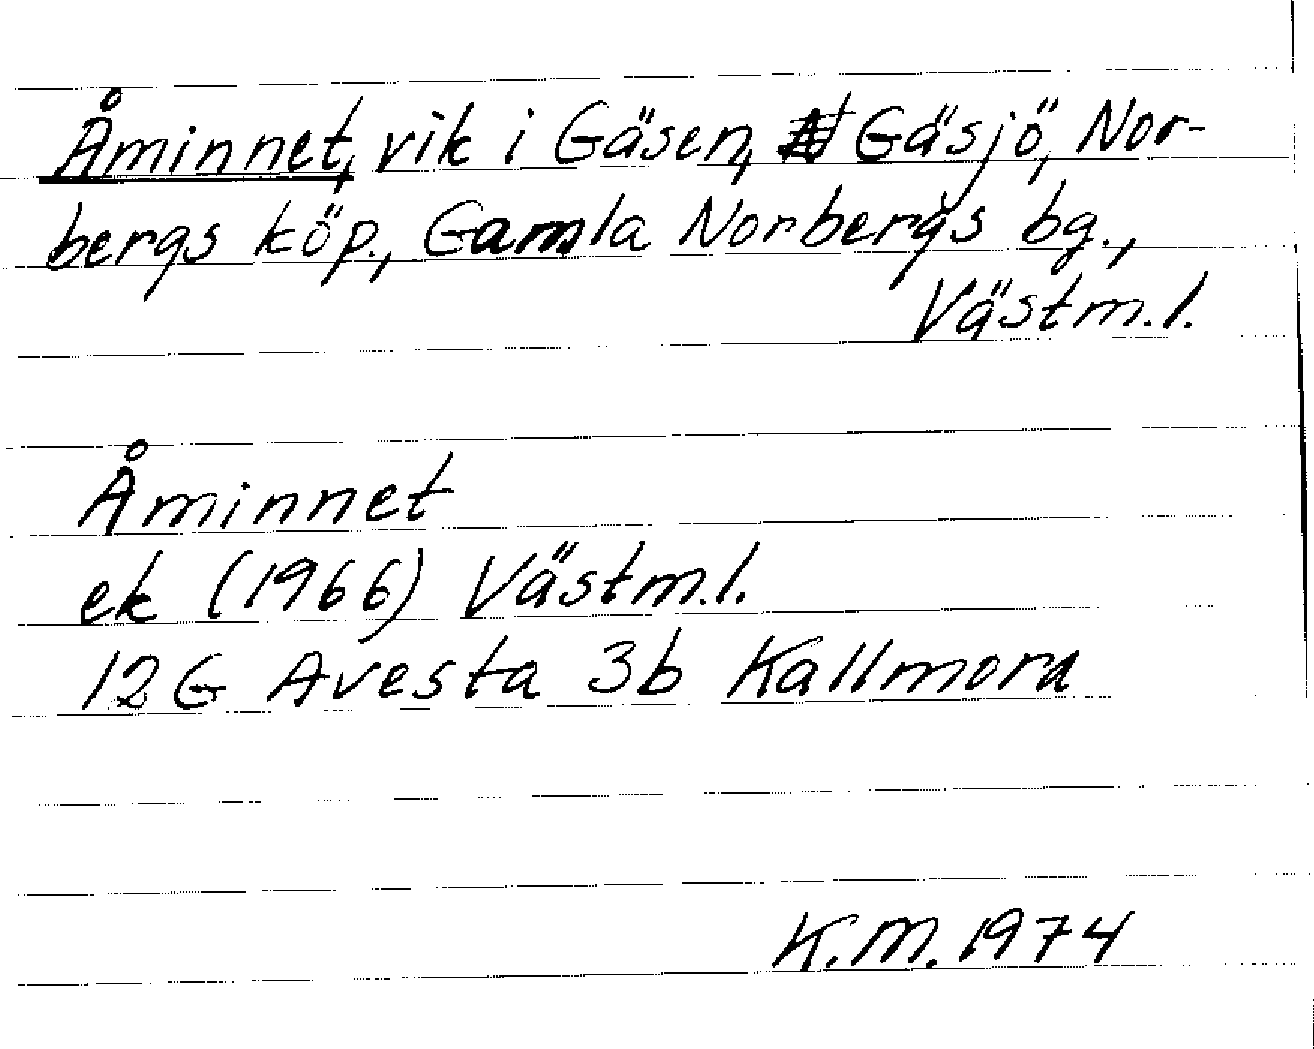 Åminnet, vik i Gäsen, Gäsjö, Nor-
bergs köp., Gamla Norbergs bg.,
Västm.l.
Åminnet
ek (1966) Västm.l.
12G Avesta 3b Kallmora
K.M. 1974